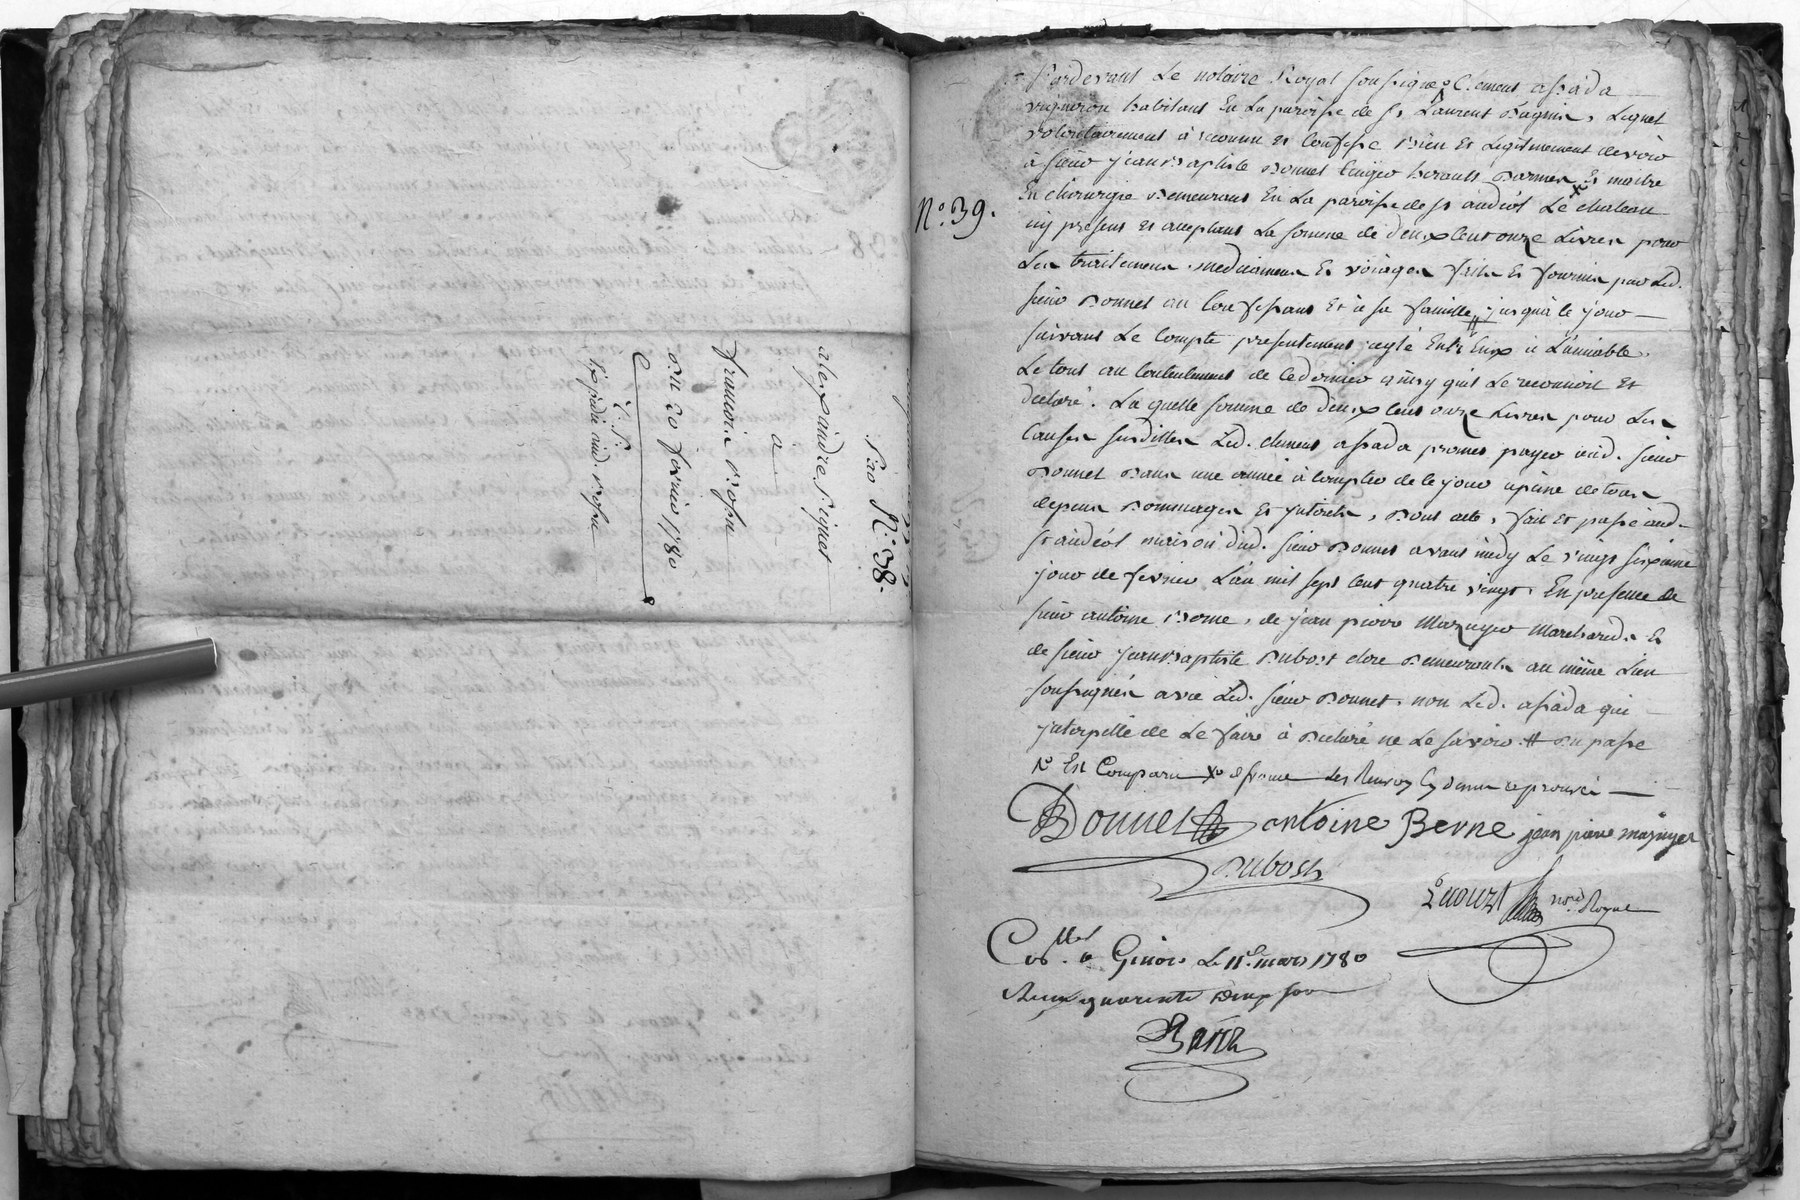 N.º 38.
alexandre Signet
à
francois
du 20 fevrier 1780
N.º 39.
Pardevant Le notaire Royal soussigné Clement assada
vigneron habitant En La paroisse de St Laurent Dagnin, Lequel
volontairement à reconnu et Confessé Bien Et Legitimement devoir
à sieur jean Baptiste Donnet Ecuyer herault Darmes Et maitre
En chirurgie Demeurant En La paroisse de St andéol Le chateau
icy présent Et acceptant La somme de deux Cent onze Livres pour
Les traitements medicaments Et voiages faits Et fournis par Led.
sieur Donnet au Confessant Et à sa famille jusqu'à ce jour
suivant Le Compte presentement reglé Entr'Eux à L'amiable,
Le tout au Contentement de ce dernier ainsy qu'il Le reconnoit Et
declaré. La quelle somme de deux Cent onze Livres pour Les
Causes susdittes Led. clement assada promet payer aud. sieur
Donnet Dans une année à Compter de ce jour à peine de tous
depens Dommages Et jnterets, Dont acte, fait Et passé aud.
St andéol maison dud. sieur Donnet avant midy Le vingt sixieme
jour de fevrier L'an mil sept Cent quatre vingt. En presence de
sieur antoine Berne, de jean pierre Mazuyer Marchands Et
de sieur jean Baptiste Dubost clerc Demeurants au même Lieu
soussignés avec Led. sieur Donnet, non Led. assada qui
jnterpellé de Le faire à Declaré ne Le savoir # du passé
Est Comparu les Renvoy Cy dessus approuvés
Donnet antoine Berne jean pierre mazuyer
Dubost
nore Royal
à Givors Le 11e mars 1780
Reçu quarante Deux sous